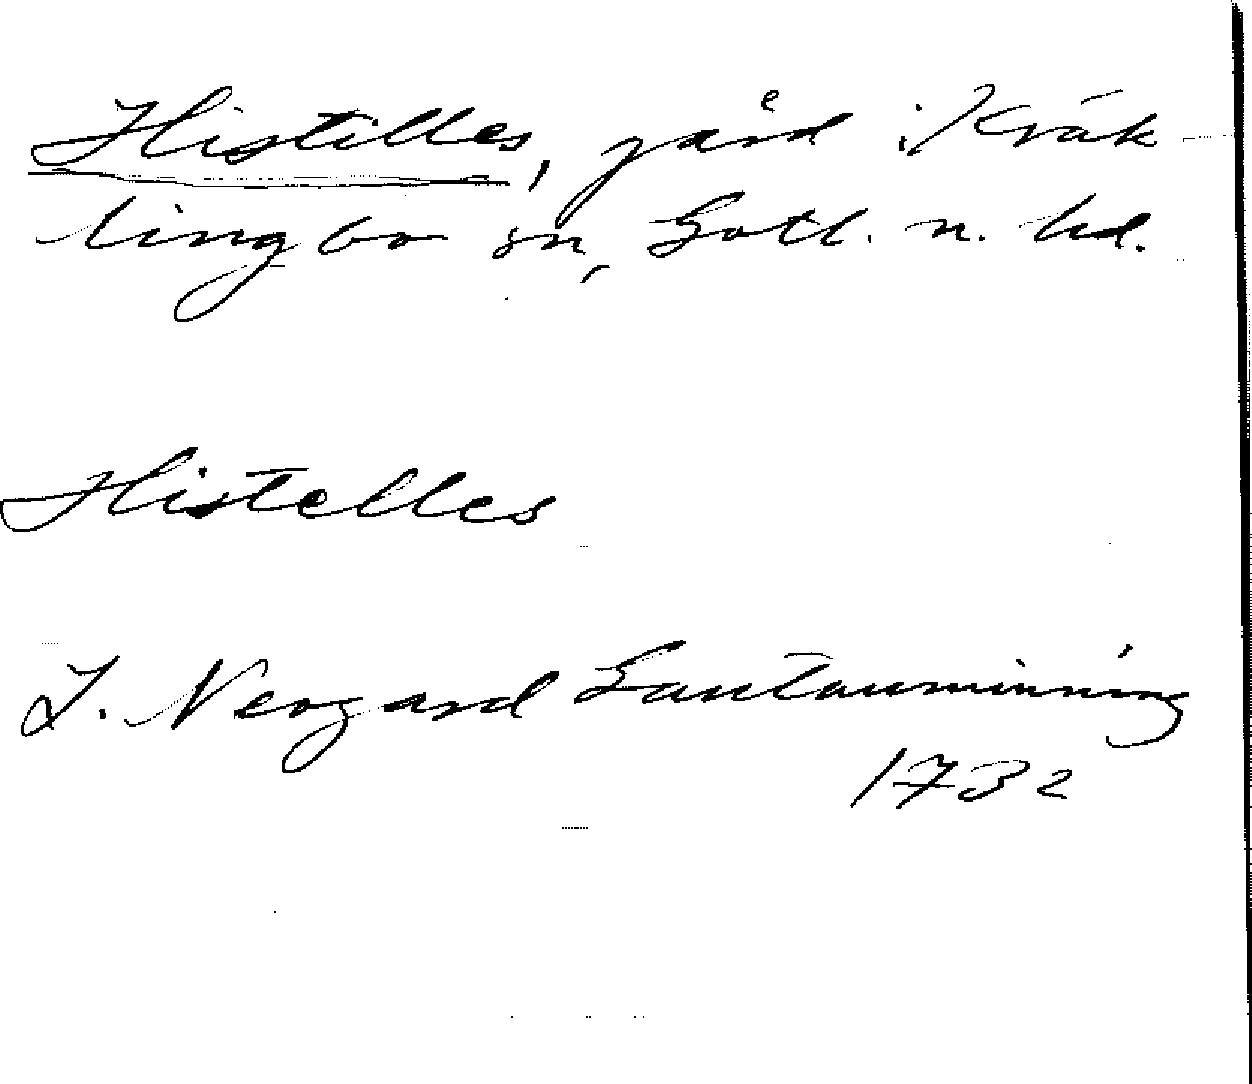 Histilles, gård i Kräk-
lingbo sn, Gotl. n. hd.
Histelles
J. Neogard Gautauminning
1732